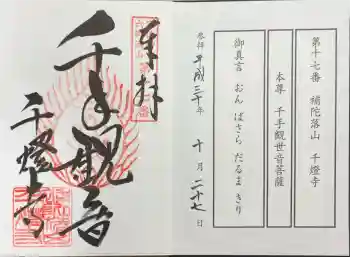 第十七番 補陀落山 千燈寺
本尊 千手観世音菩薩
御真言 おん ばさら だるま きり
参拝 平成三十年 十月二十七日
奉拝
千手観音
千燈寺